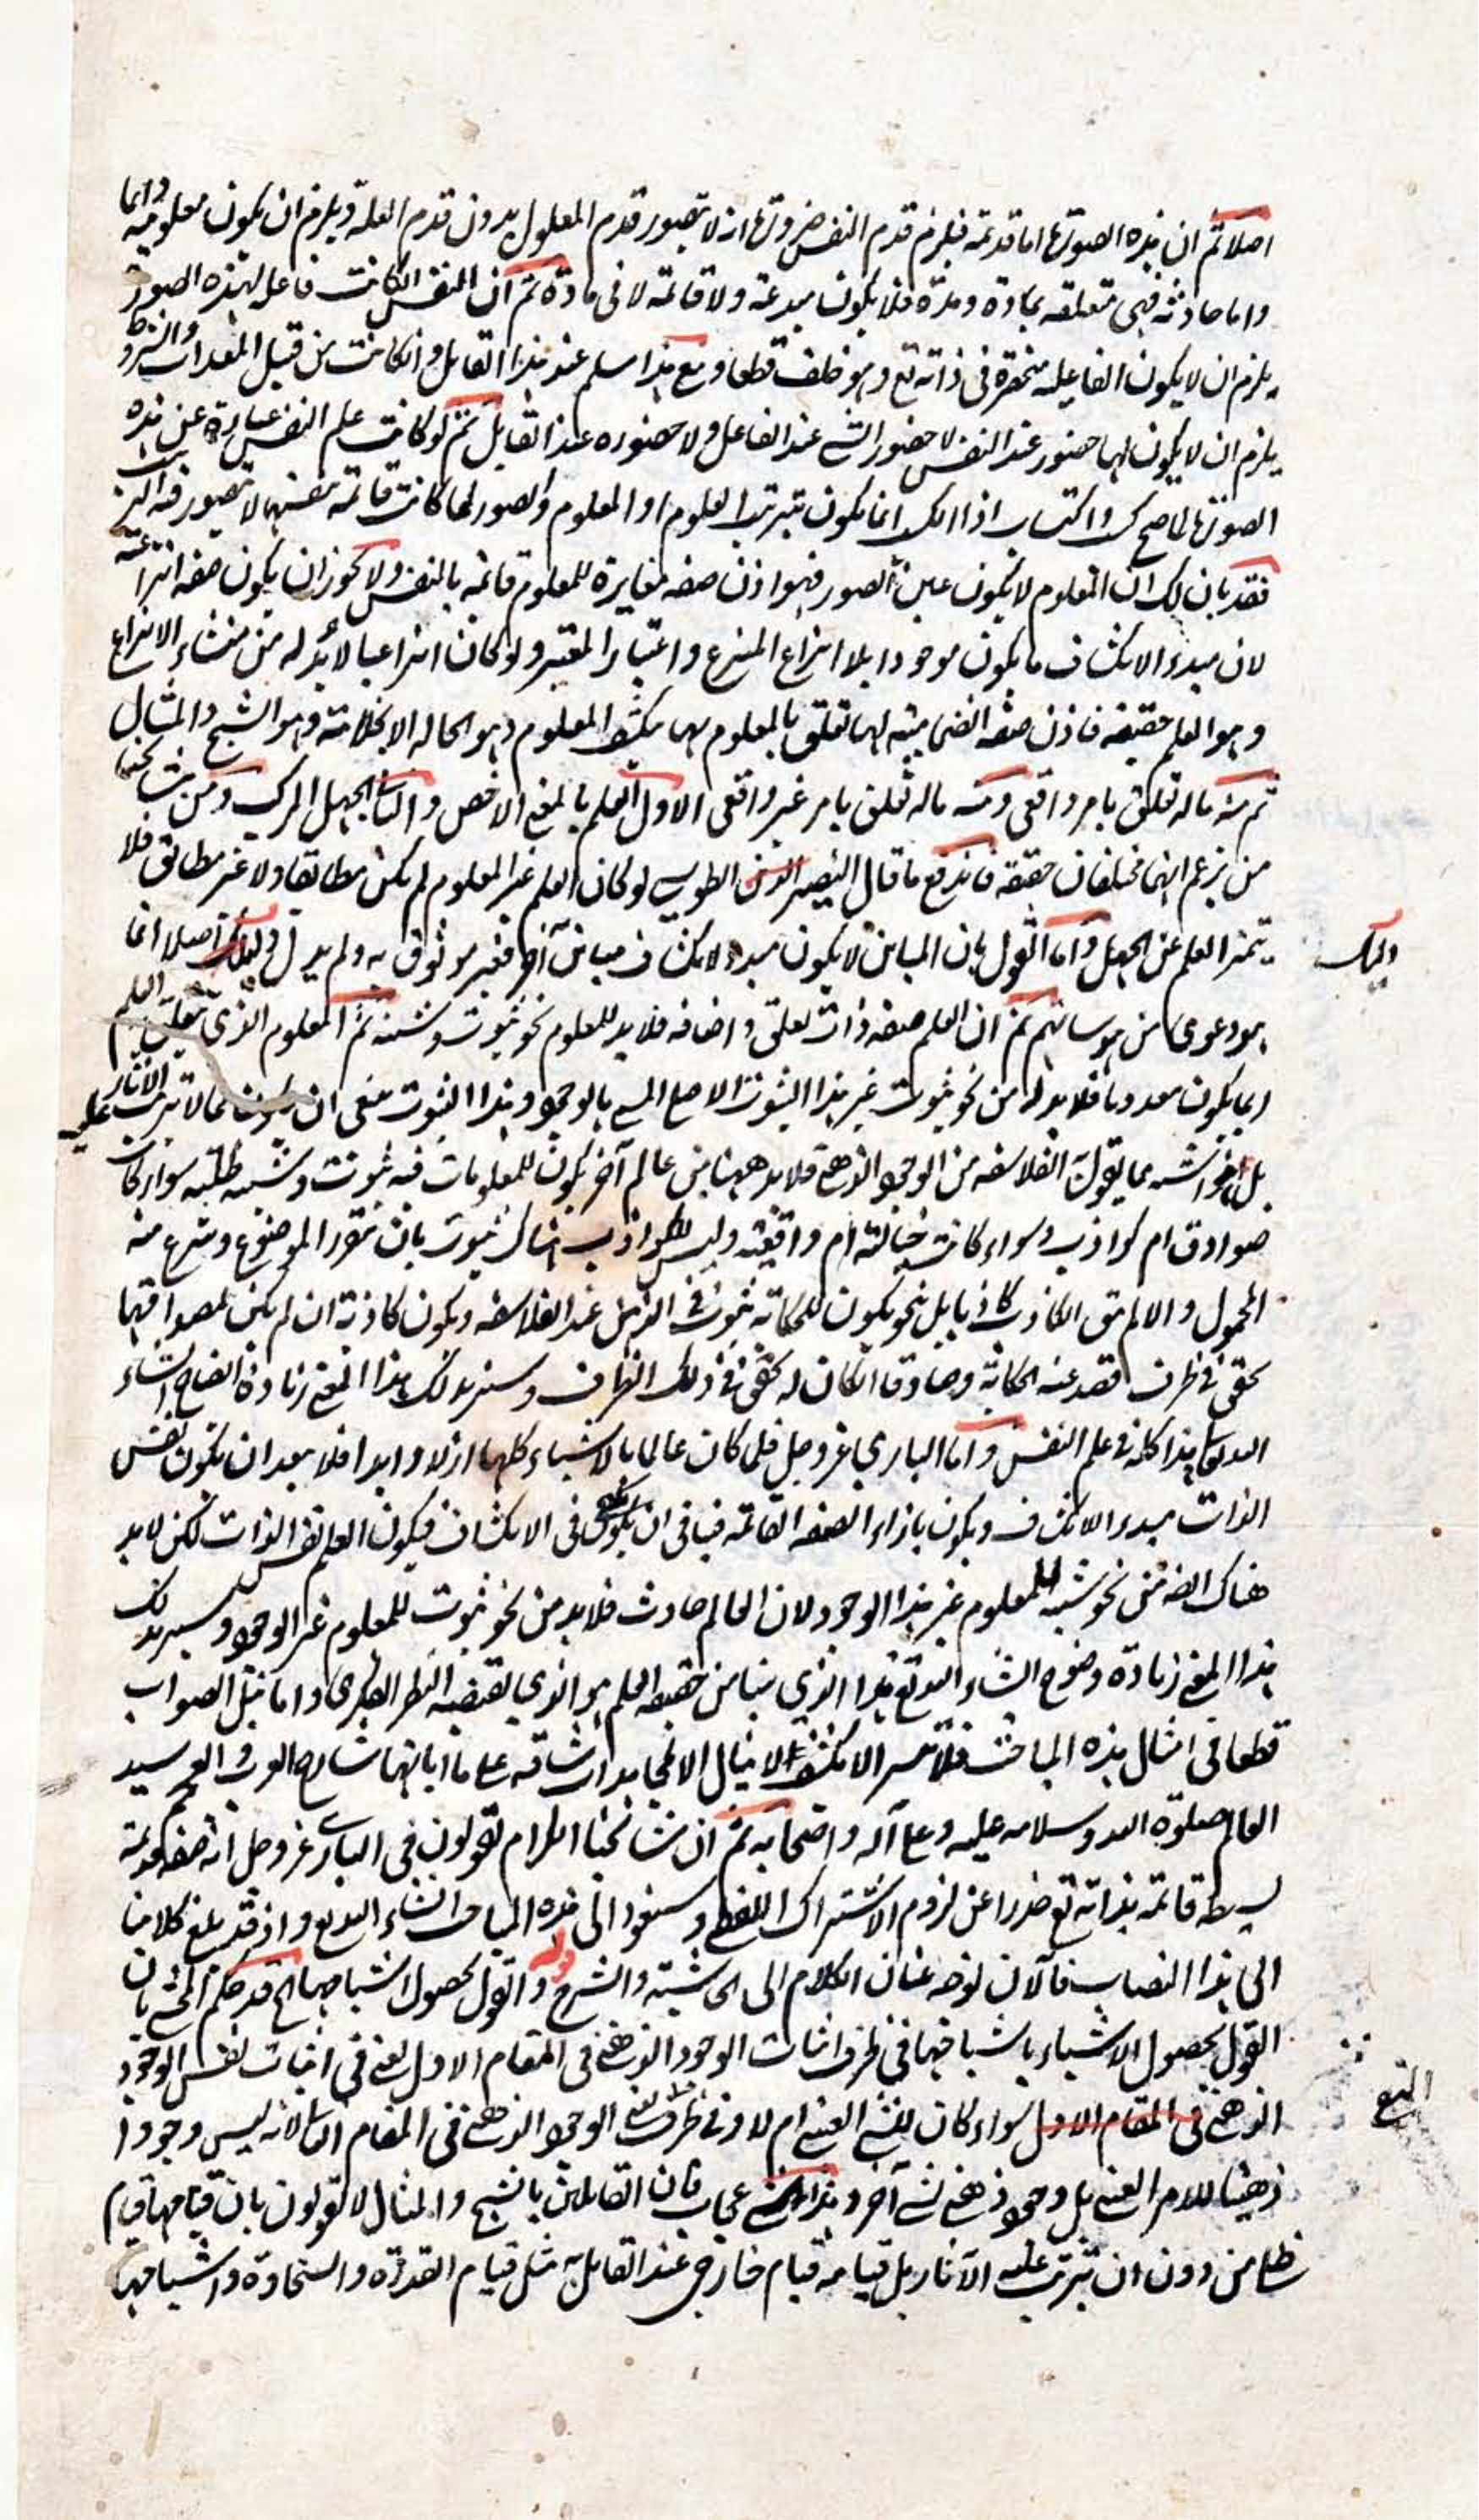 اصلا ثم ان هذه الصورة اما قديمة فيلزم قدم النفس ضرورة اذ لا يتصور قدم المعلول بدون قدم العلة ويلزم ان يكون معلومية دائما
واما حادثة فهي متعلقة بمادة ومدة فلا يكون مبدعة ولا قائمة لا في مادة ثم ان النفس ان كانت فاعلة لهذه الصور
يلزم ان لا يكون الفاعلية منحصرة في ذاته تع وهو خلف قطعا ومع هذا سلم عند هذا القايل وان كانت من قبيل المعدات والشروط
يلزم ان لا يكون لها حضور عند النفس لا حضور الشيء عند الفاعل ولا حضوره عند القابل ثم لو كانت علم النفس عبارة عن هذه
الصورة لما صح كسب واكتساب اذ الكسب انما يكون بترتيب العلوم او المعلوم والصور لما كانت قائمة بنفسها لا يتصور فيه الترتيب
فقد بان لك ان المعلوم لا يكون عين الصور فهو اذن صفة مغايرة للمعلوم قائمة بالنفس ولا يجوز ان يكون صفة انتزاعية
لان مبدء الانكشاف ما يكون موجودا بلا انتزاع المنتزع واعتبار المعتبر ولو كان انتزاعيا لا بد له من منشاء الانتزاع
وهو العلم حقيقة فاذن صفة انضمامية لها تعلق بالمعلوم بها ينكشف المعلوم وهو الحالة الانجلائية وهو الشبح والمثال
ثم منه ماله تعلق بامر واقعي ومنه ماله تعلق بامر غير واقعي الاول العلم بالمعنى الاخص والثاني الجهل المركب ومن مشايخنا
من يزعم انهما مختلفان حقيقة فاندفع ما قال النصير الطوسي لو كان العلم غير المعلوم لم يكن مطابقا ولا غير مطابق فلا
يتميز العلم عن الجهل واما القول بان المباين لا يكون مبدء لانكشاف مباين آخر فغير موثوق به ولم يدل اصلا انما
هو دعوى من هوساتهم ثم ان العلم صفة ذات تعلق واضافة فلا بد للمعلوم نحو ثبوت وشيئية ثم المعلوم الذي تعلق به العلم
ربما يكون معدوما فلا بد له من نحو ثبوت غير هذا الثبوت الاصلي المسمى بالوجود وهذا الثبوت ينبغي ان يكون مما لا يترتب عليه الآثار
بل هو اشبه بما يقول الفلاسفة من الوجود الذهني فلا بد ههنا من عالم آخر يكون للمعلومات فيه ثبوت وشيئية ظلية سواء كان
صوادق ام كواذب وسواء كانت خيالية ام واقعية وليس للكواذب هناك ثبوت بان تقرر الموضوع وينتزع منه
المحمول والا لم يبق الكاذب كاذبا بل نحو يكون للحكاية ثبوت في الذهن عند الفلاسفة ويكون كاذبة ان لم يكن لمصداقها
تحقق في ظرف قصد عنه الحكاية وصادقا ان كان له تحقق في ذلك الظرف وسنريد لك هذا المعنى زيادة ايضاح انشاء
الله تعالى هذا كله في علم النفس واما الباري عز وجل فلما كان عالما بالاشياء كلها ازلا وابدا فلا يبعد ان يكون نفس
الذات مبدء الانكشاف ويكون بازاء الصفة القائمة فينا في ان يكون في الانكشاف فيكون العلم نفس الذات لكن لا بد
هناك ايضا من نحو شيئية للمعلوم غير هذا الوجود لان العالم حادث فلا بد من نحو ثبوت للمعلوم غير الوجود وسيزيد لك
هذا المعنى زيادة وضوح انشاء الله تع هذا الذي بينا من حقيقة العلم هو الذي يقتضيه النظر الفكري واما نيل الصواب
قطعا في امثال هذه المباحث فلا يتيسر الا بكشف لا ينال الا بمجاهدات شاقة على ما ابانها شارع العرب والعجم سيد
العالم صلوة الله وسلامه عليه وعلى آله واصحابه ثم ان مشايخنا الكرام يقولون في الباري عز وجل انه صفة قديمة
بسيطة قائمة بذاته تع حذرا عن لزوم الاشتراك اللفظي وسنعود الى هذه المباحث انشاء الله تع واذ قد بلغ كلامنا
الى هذا النصاب فالآن نوجه عنان الكلام الى الحاشية والشرح قوله والقول بحصول اشباحها الخ قد حكم المحشي بان
القول بحصول الاشياء باشباحها في طرف اثبات الوجود الذهني في المقام الاول يعني في اثبات نفس الوجود
الذهني في المقام الاول سواء كان للشيء العيني ام لا وفي طرف نفي الوجود الذهني في المقام الثاني لانه ليس وجودا
ذهنيا للامر العيني بل وجود ذهني لشيء آخر وهذا شيء عجاب فان القائلين بالشبح والمثال لا يقولون بان قيامها قيام
ظلي من دون ان يترتب عليه الآثار بل قيامه قيام خارجي عند القايل به مثل قيام القدرة والسخاوة واشباهها